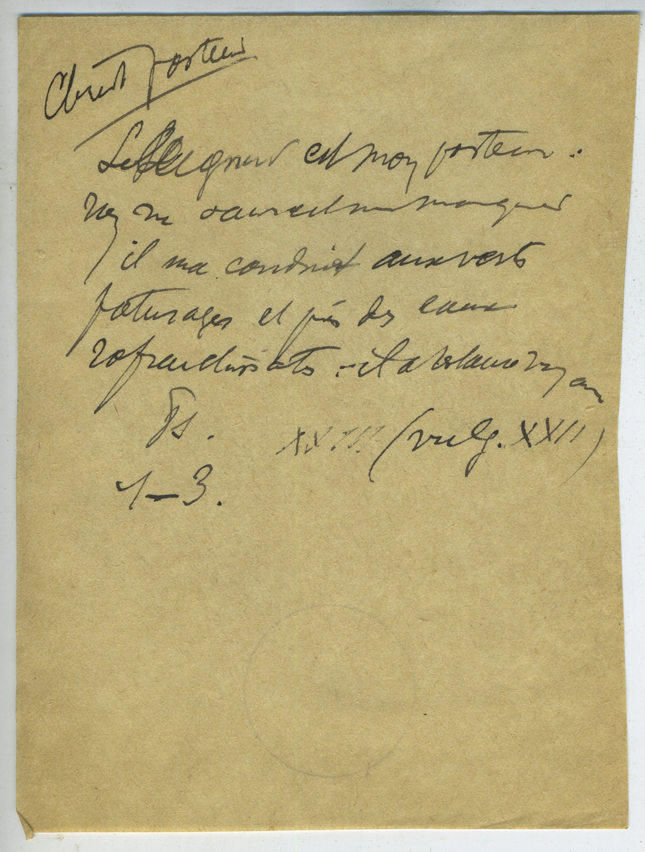 Christ pasteur
Le Seigneur est mon pasteur.
rien ne saurait me manquer
il m'a conduit aux verts
paturages et près des eaux
rafraichissants - il a restauré mon ame
Ps. XXIII (vulg. XXII)
1-3.